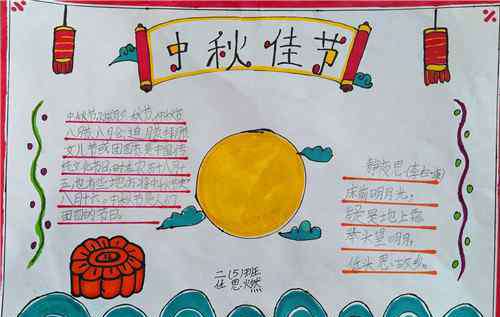 中秋佳节
中秋节,又称
八月节、八月会、追月节、拜月节
女儿节或团圆节,是中国传
统文化节日,时在农历十八月十
五,也有些地方将中
八月十六。中秋节是人们
团圆的节日。
静夜思(李白)
床前明月光,
疑是地上霜,
举头望明月,
低头思故乡。
二(5)班
任思燃